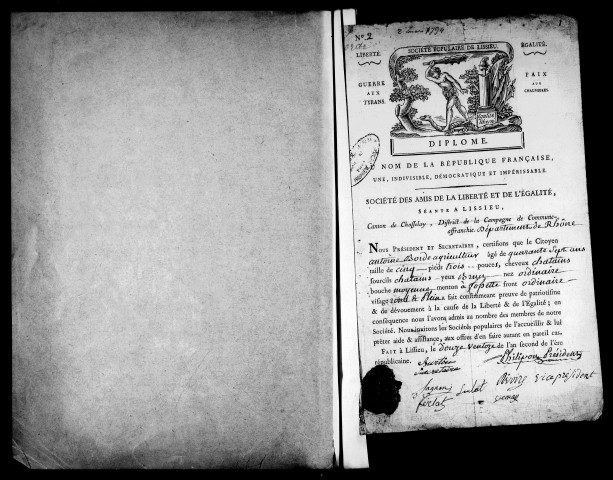 No. 2
2 mars 1794
SOCIÉTÉ POPULAIRE DE LISSIEU.
LIBERTÉ. ÉGALITÉ.
GUERRE AUX TYRANS.
PAIX AUX CHAUMIERES.
DIPLOME.
NOM DE LA RÉPUBLIQUE FRANÇAISE,
UNE, INDIVISIBLE, DÉMOCRATIQUE ET IMPÉRISSABLE.
SOCIÉTÉ DES AMIS DE LA LIBERTÉ ET DE L'ÉGALITÉ,
SÉANTE A LISSIEU,
Canton de Chasselay, District de la Campagne de Commune-
affranchie. Département de Rhône
NOUS PRÉSIDENT ET SECRETAIRES, certifions que le Citoyen
antoine Borde agriculteur âgé de quarante sept ans
taille de cinq pieds trois pouces, cheveux chatains
sourcils chatains yeux Brun nez ordinaire
bouche moyenne menton a fossette front ordinaire
visage rond & Plein a fait constamment preuve de patriotisme
& de dévouement à la cause de la Liberté & de l'Egalité; en
conséquence nous l'avons admis au nombre des membres de notre
Société. Nous invitons les Sociétés populaires de l'accueillir & lui
prêter aide & assistance, aux offres d'en faire autant en pareil cas,
FAIT à Lissieu, le douze ventose de l'an second de l'ère
républicaine.
secretaire
Philipon Président
vice président